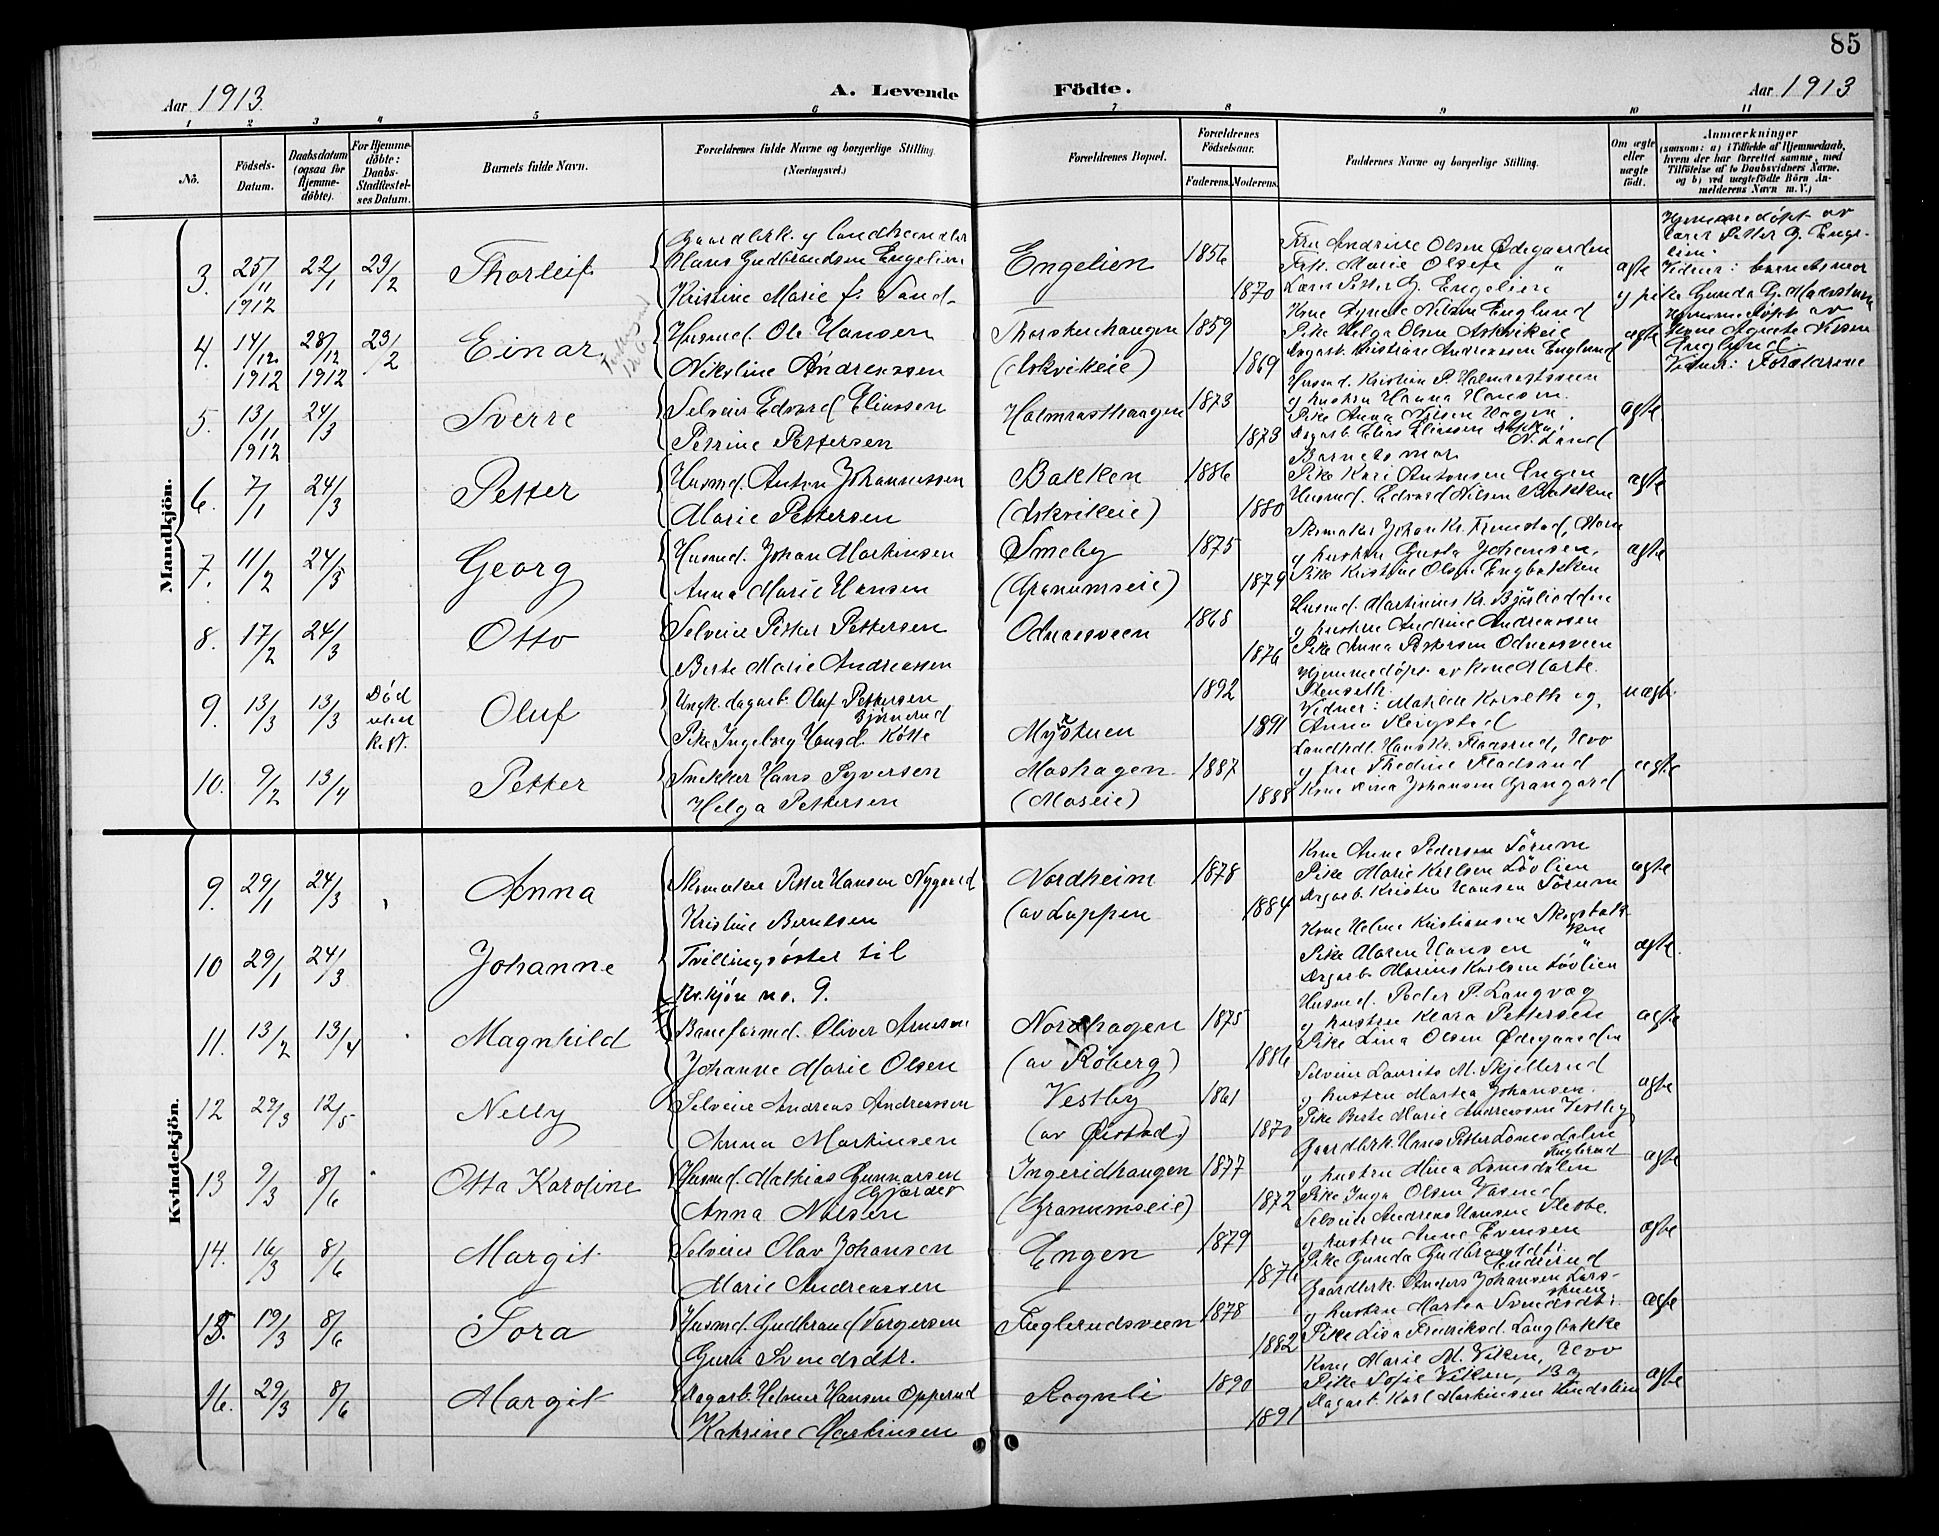 85
Aar 1913.
A. Levende
Födte.
Aar 1913
1 2 3 4 5 6 7 8 9 10 11
No.
Födsels-
Datum.
Daabsdatum
(ogsaa for
Hjemme-
døbte).
For Hjemme-
døbte:
Daabs-
Stadfæstel-
ses Datum.
Barnets fulde Navn.
Forældrenes fulde Navne og borgerlige Stilling
(Næringsvei.)
Forældrenes Bopæl.
Forældrenes
Födselsaar.
Faderens. Moderens.
Faddernes Navne og borgerlige Stilling.
Om ægte
eller
uægte
födt.
Anmærkninger
(saasom: a) i Tilfælde af Hjemmedaab,
hvem der har forrettet samme, med
Tilföielse af to Daabsvidners Navne,
og b) ved uægtefödte Börn An-
melderens Navn m. V.)
Mandkjön.
3. 25/11 1912 22/1 23/2 Thorleif
Gaardbrk. og landhandler
Hans Gudbrandsen Engelien
Kristine Marie f. Sand
Engelien 1856 1870
Fru Andrine Olsen Ødegaarden
Frk. Marie Olsen "
Lærer Petter G. Engelien
ægte
Hjemmedøpt av
lærer Petter G. Enge-
lien.
Vidner: barnets mor
og pike Gunda G.
4. 14/12 1912 28/12 1912 23/2 Einar
Husmd. Ole Hansen
Nikoline Andreassen
Thorskenhaugen
(Askvikeie) 1859 1869
Kone Agnete Nilsen Englund
Pike Helga Olsen Askvikeie
Dagarb. Kristiane Andreassen Englund
ægte
Hjemmedøpt av
Kone Agnete Nilsen
Englund.
Vidner: Forældrene
5. 13/11 1912 24/3 Sverre
Selveier Edvard Eliassen
Petrine Pettersen
Halmrasthaugen 1873 1873
Husmd. Kristian P. Halmrasteien
og hustru Hanna Hansen.
Pike Anna Nilsen Hagen,
Dagarb. Elias Eliassen
N. Land
ægte.
6. 7/1 24/3 Petter
Husmd. Anton Johannessen
Marie Pettersen
Bakken
(Askvikeie) 1886 1880
Barnets mor
Pike Kari Antonsen Engen
Husmd. Edvard Nilsen Bakken
ægte
7. 11/2 24/3 Georg
Husmd. Johan Martinsen
Anna Marie Hansen
Smeby
(Granumseie) 1875 1879
Skomaker Johan Kr.
og hustru Gusta Johansen,
Pike Kristine Olsen Engbakken
ægte
8. 17/2 24/3 Otto
Selveier Petter Pettersen
Berte Marie Andreassen
Odnæsveen 1868 1876
Husmd. Martinius Kr.
og hustru Andrine Andreassen
Pike Anna Pettersen Odnæsveen
9. 13/3 13/3 Død
uten
Oluf
Ungk. dagarb. Oluf Pettersen
Bjørnerud
Pike Ingeborg Hansd. Køtte
Mystuen 1892 1891
Hjemmedöpt av kone Marte
Stenseth.
Vidner: Mathilde Korseth og
Anna
uægte.
10. 9/2 13/4 Petter
Snekker Hans Syversen
Helga Pettersen
Moshagen
(Moseie) 1887 1888
Landhdl. Hans Kr. Fladsrud, Hov
og fru Thedine Fladsrud
Kone Dina Johansen Grangard
ægte
Kvindekjön.
9. 29/1 24/3 Anna
Skomaker Petter Hansen Nygard
Kristine Berntsen
Nordheim
(av Lappen 1878 1884
Kone Anne Pedersen Sørum
Pike Marie Karlsen Løvlien
Dagarb. Kristen Hansen Sørum
ægte
10 29/1 24/3 Johanne
Tvillingsøster til
Kv.kjøn no. 9.
Kone Helene Kristiansen Skogbak-
ken
Pike Maren Hansen "
Dagarb. Marius Karlsen Løvlien
ægte.
11. 13/2 13/4 Magnhild
Baneformd. Oliver Arnesen
Johanne Marie Olsen
Nordhagen
(av Røberg) 1875 1886
Husmd. Peder P. Langvæg
og hustru Klara Pettersen
Pike Lina Olsen Ødegaarden
ægte
12 29/3 12/5 Nelly
Selveier Andreas Andreassen
Anna Martinsen
Vestby
(av Øistad) 1861 1870
Selveier Laurits M. Skjellerud
og hustru Martea Johansen.
Pike Berte Marie Andreassen Vestby
ægte
13 9/3 8/6 Otta Karoline
Husmd. Mathias Gunnarsen
Anna Nilsen
Ingeridhaugen
(Granumseie) 1877 1872
Gaardbrk. Hans Petter Lomsdalen
Fuglerud
og hustru Mina Lomsdalen
Pike Inga Olsen
ægte
14. 16/3 8/6 Margit
Selveier Olav Johansen
Marie Andreassen
Engen 1879 1876
Selveier Andreas Hansen
og hustru Anne Evensen
Pike Gunda Gudbrandsdtr.
ægte
15. 19/3 8/6 Tora
Husmd. Gudbrand Torgersen
Guri Svendsdtr.
Fuglerudsveen 1878 1882
Gaardbrk. Anders Johansen Lars-
stuen
og hustru Martea Svendsdtr.
Pike Lisa Fredriksd. Langbakke
ægte
16. 29/3 8/6 Margit
Dagarb. Helmer Hansen Opperud
Katrine Martinsen
Rognli 1890 1891
Kone Marie M. Viken, Hov
Pike Sofie Viken,
Dagarb. Karl Martinsen Lindslien
ægte